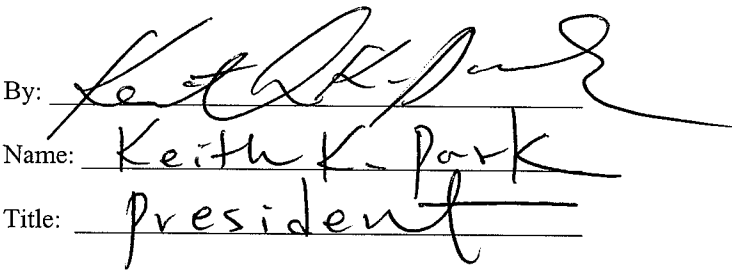 By: Keith K. Park
Name: Keith K. Park
Title: President